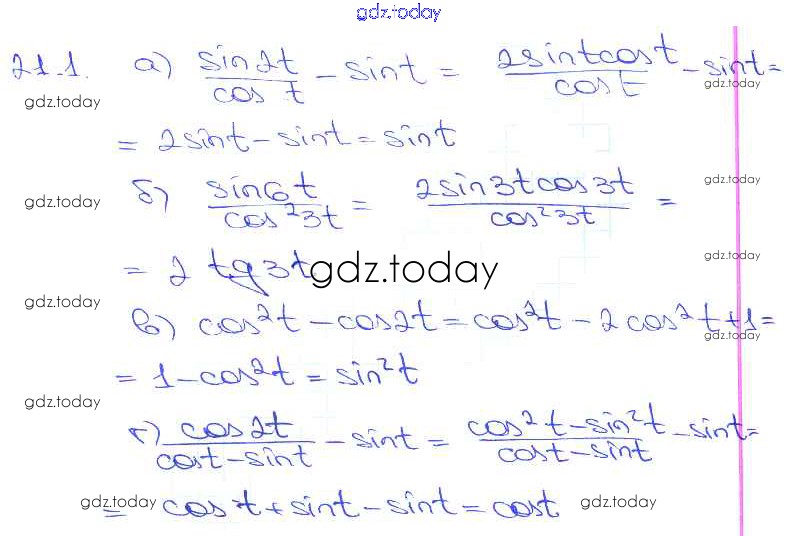 gdz.today
21.1. а) sin2t/cos t - sint = 2sintcost/cost - sint =
gdz.today gdz.today
= 2sint - sint = sint
б) sin6t/cos²3t = 2sin3tcos3t/cos²3t =
gdz.today gdz.today
= 2 tg3t gdz.today gdz.today
gdz.today
в) cos²t - cos2t = cos²t - 2cos²t + 1 =
gdz.today
= 1 - cos²t = sin²t
gdz.today
г) cos2t/cost - sint - sint = cos²t - sin²t/cost - sint - sint =
gdz.today gdz.today
= cost + sint - sint = cost